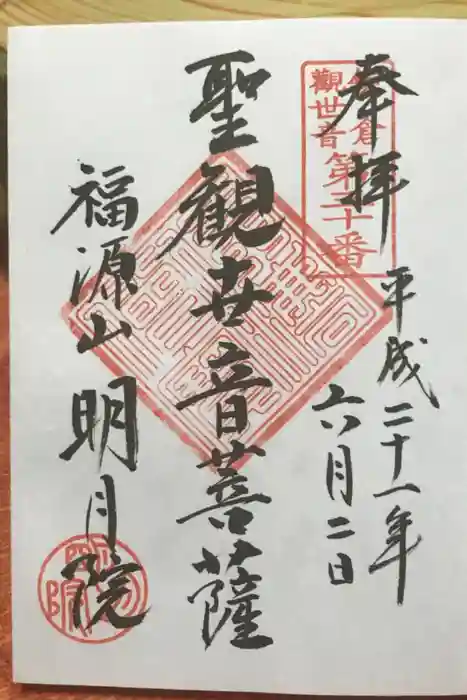 奉拝
平成二十一年
六月二日
聖観世音菩薩
福源山 明月院
鎌倉
観世音
第三十番